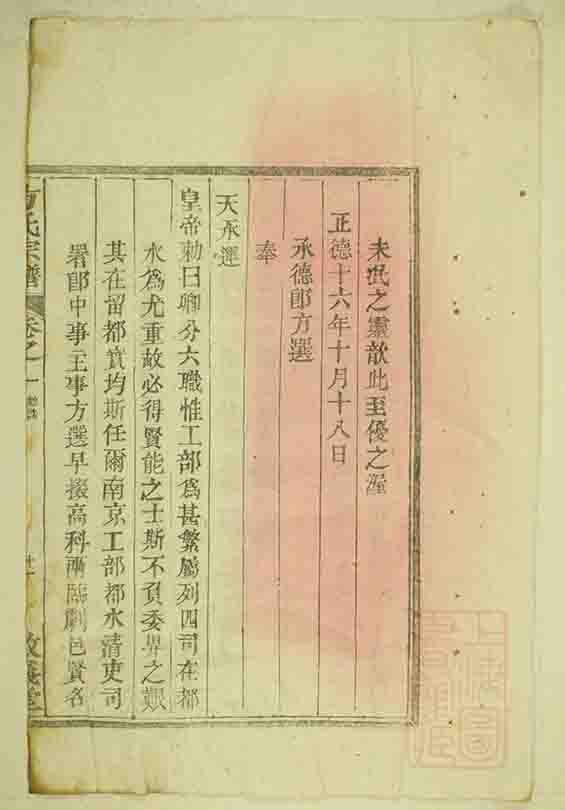 未泯之靈歆此至優之渥
正德十六年十月十八日
承德郎方選
奉
天承運
皇帝勅曰卿分六職惟工部為甚繁屬列四司在都
水為尤重故必得賢能之士斯不負委畀之艱
其在留都實均斯任爾南京工部都水清吏司
署郎中事主事方選早掇高科兩臨劇邑賢名
方氏宗譜
卷之一
十一
敦義堂
上海圖書館藏